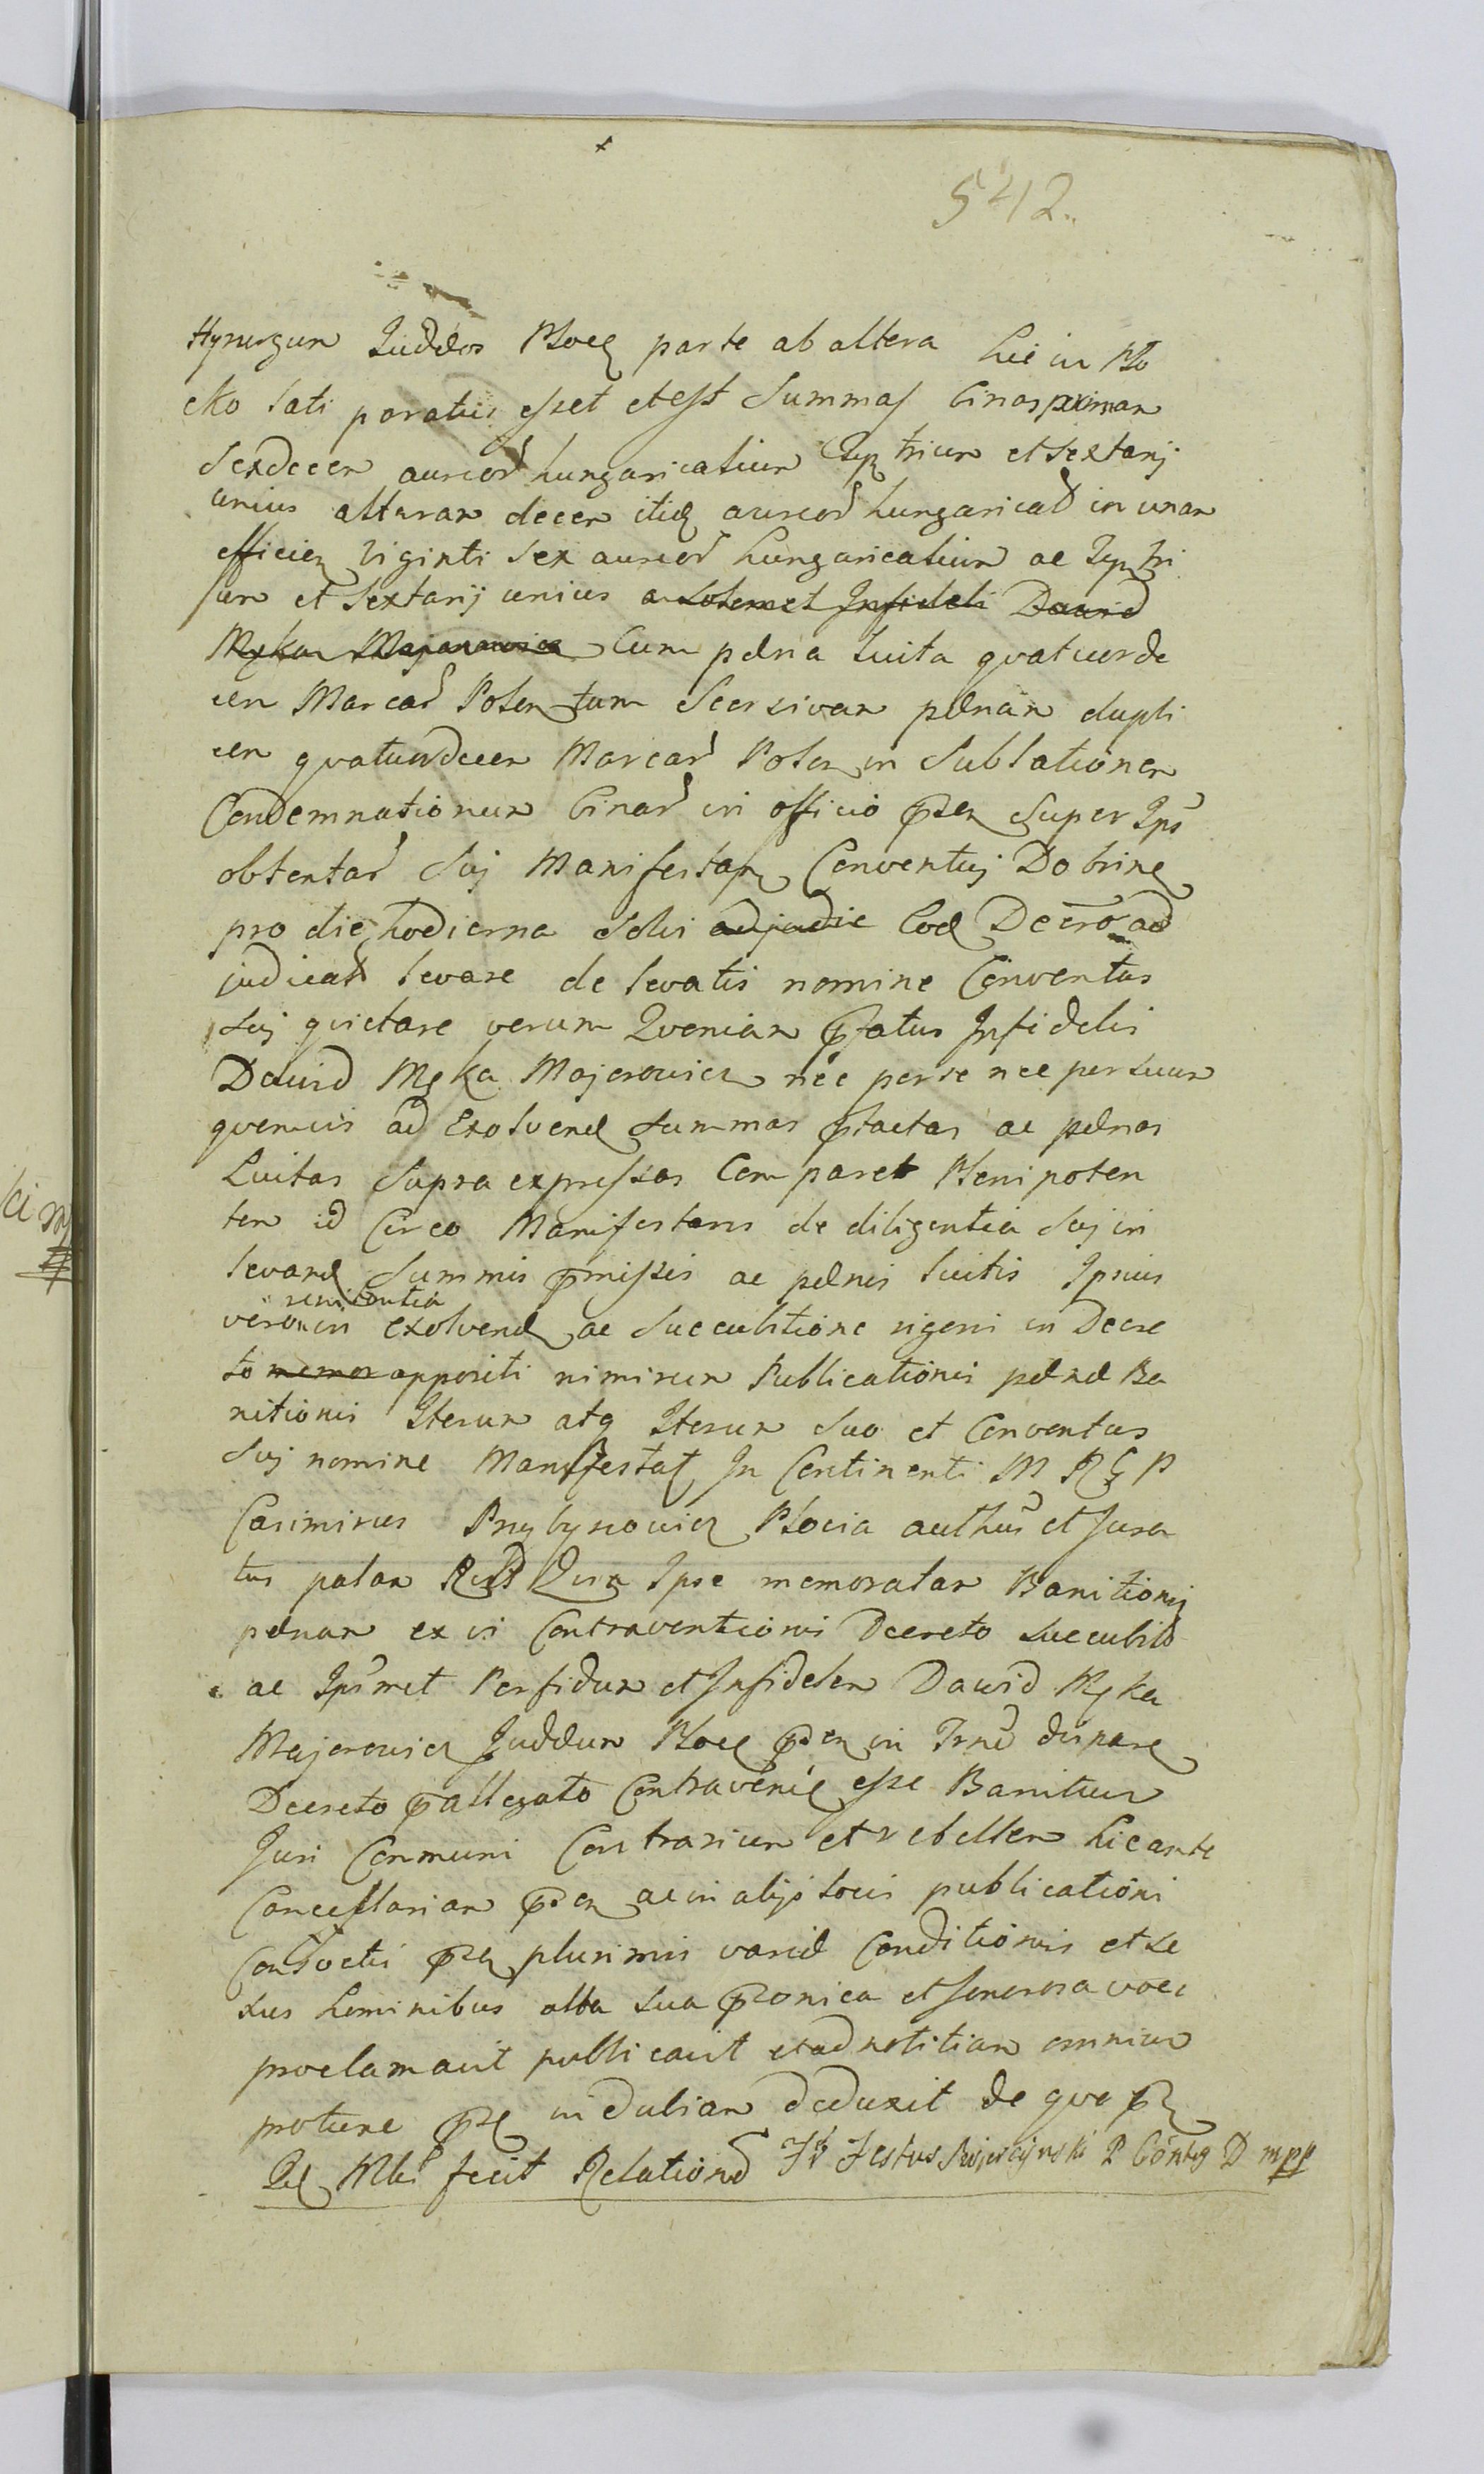 542.
Hyrurgum Judæos Ploceñ parte ab altera hic in Plo
cko lati paratus esset et est Summas binas primam
Sexdecem aureor hungaricalium Tyn trium et sextarij
unius alteram decem itid aureor hungaricał in unam
efficien Viginti sex aureor hungaricalium ac Tyn tri
um et Sextarij unius a Solemet Infideli Dawid
Myka Majorowicz Cum pæna luita quatuorde
cem Marcar Polon tum Seorsivam pænam dupli
cem quatuordecem Marcar Polon in Sublationem
Condemnationum binar in officio præn super Ipso
obtentar Suj Manifestan Conventuj Dobrinen
pro die hodierna Solvi adjudic Eod Decro ad
judicat levare de levatis nomine Conventus
Suj quietare verum Quoniam pfatus Infidelis
Dawid Myka Majorowicz nec per se nec per suum
quemvis ad Exolvend Summas ptactas ac pænas
Luitas Supra expressas Comparet Plenipoten
tem id Circo Manifestans de diligentia Suj in
levand Summis pmissis ac pænis luitis Ipsius
renitentia
vero in exolvend ac Succubitione rigoris in Decre
to memor appositi nimirum Publicationis pænæ Ba
nitionis Iterum atq Iterum Suo et Conventus
Suj nomine Manifestat In Continenti M R G P
Casimirus Przybyszowicz Plocia authus et Jura
tus palam Rcdt Quia Ipse memoratam Banitionis
pænam ex vi Contraventionis Decreto Succubito
ac Ipsmet Perfidum et Infidelem Dawid Myka
Majerowicz Judæum Ploce præn in Trno disparen
Decreto pallegato Contravenie esse Banitum
Juri Communi Contrarium et rebellem hic ante
Cancellariam præn ac in alijs locis publicationi
Consvetis præn plurimis variæ Conditionis et se
xus hominibus alta sua præonica et Sonorosa voce
proclamavit publicavit et ad notitiam omnium
protune præ indubiam deduxit de quo pr
Rel Mbr fecit Relation